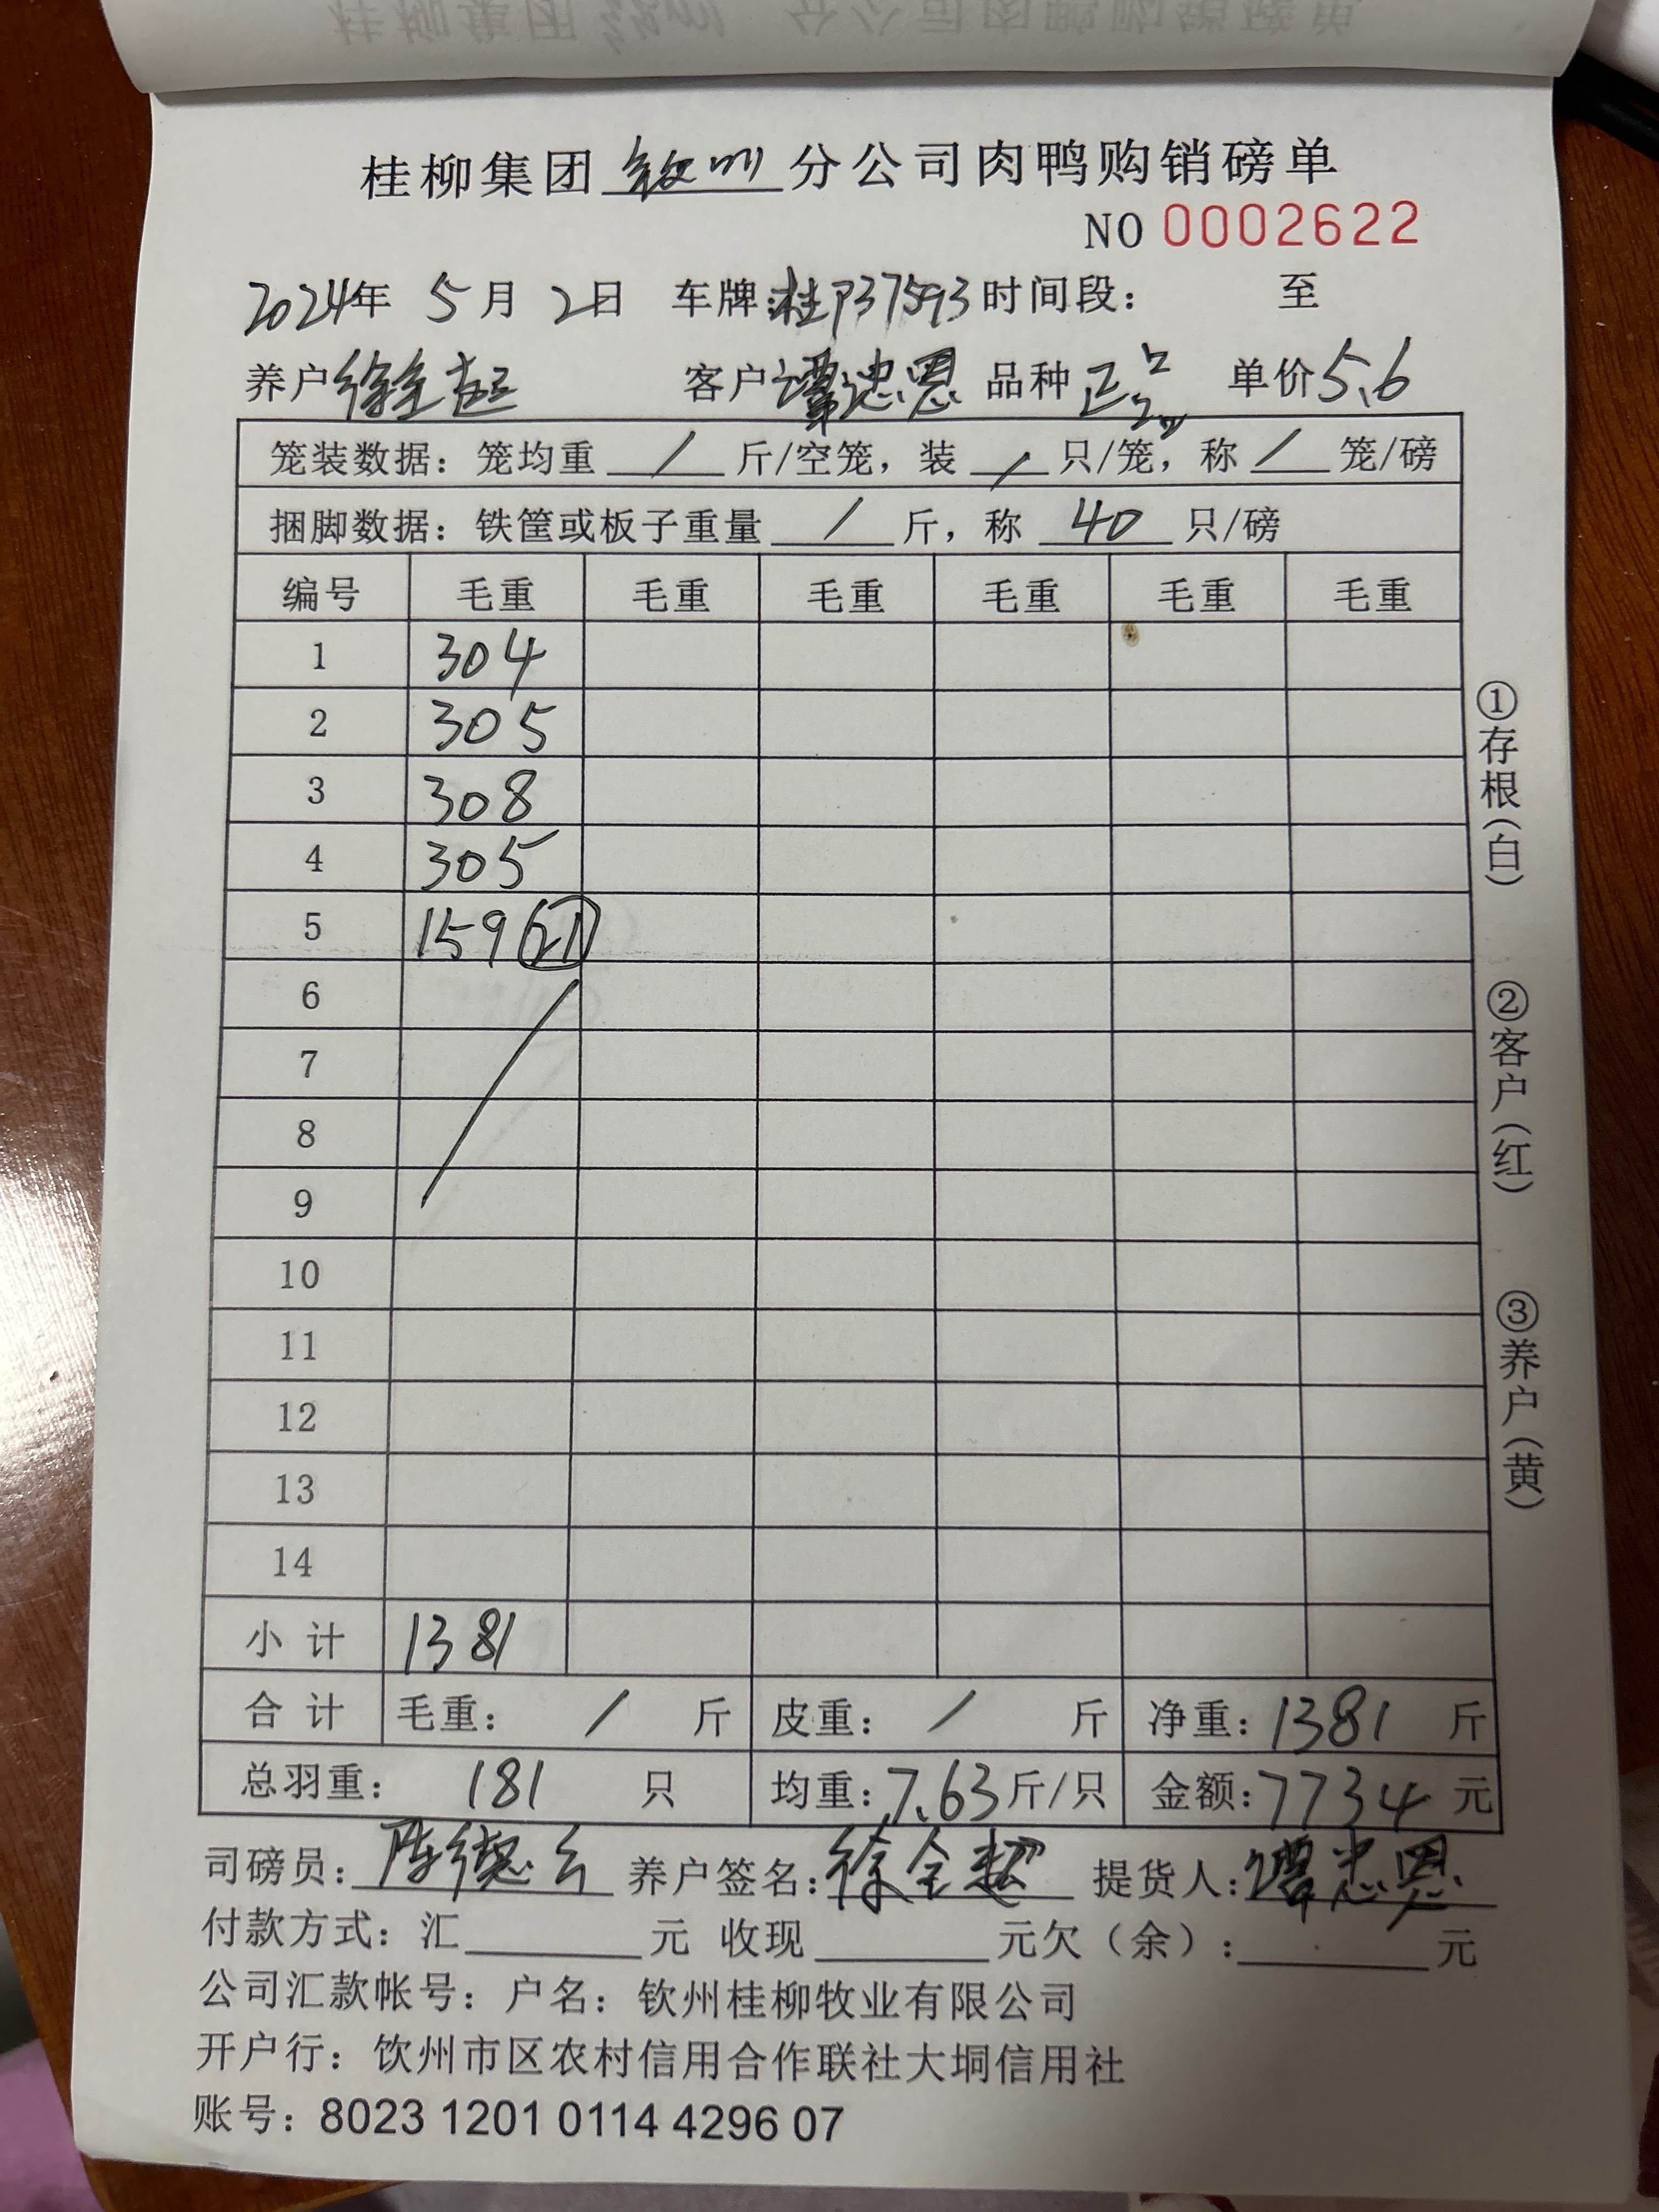 桂柳集团 钦州 分公司肉鸭购销磅单
NO 0002622
2024年 5月 2日 车牌:桂P37593 时间段： 至
养户 徐全超 客户 谭忠恩 品种 正品 单价 5.6
笼装数据：笼均重 / 斤/空笼，装 / 只/笼，称 / 笼/磅
捆脚数据：铁筐或板子重量 / 斤，称 40 只/磅
编号 毛重 毛重 毛重 毛重 毛重 毛重
1 304
2 305
3 308
4 305
5 159 (21)
6
7
8
9
10
11
12
13
14
小计 1381
合计 毛重： / 斤 皮重： / 斤 净重：1381 斤
总羽重： 181 只 均重：7.63斤/只 金额：7734 元
司磅员：陈德云 养户签名：徐全超 提货人：谭忠恩
付款方式：汇 元 收现 元欠（余）： 元
公司汇款帐号：户名：钦州桂柳牧业有限公司
开户行：钦州市区农村信用合作联社大垌信用社
账号：8023 1201 0114 4296 07
①存根（白）
②客户（红）
③养户（黄）